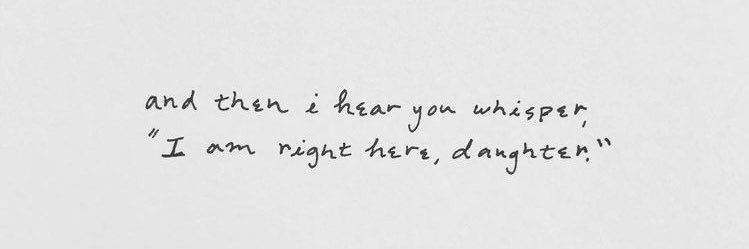 and then i hear you whisper,
"I am right here, daughter."